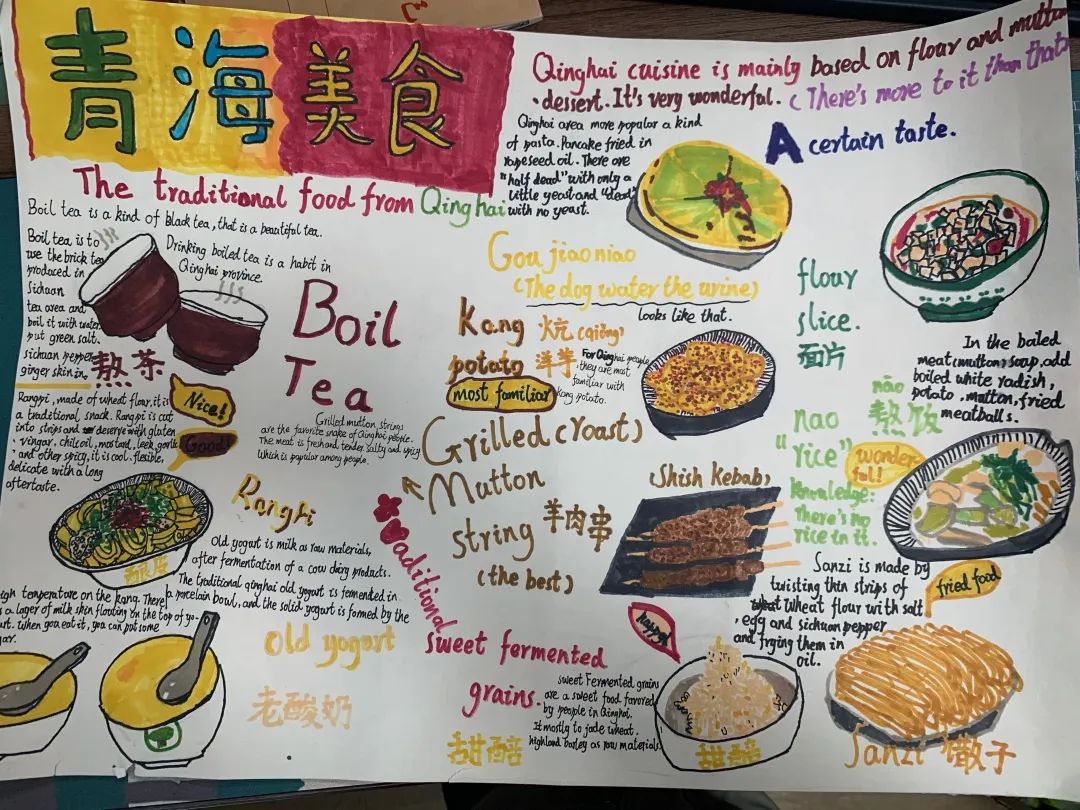 青海美食
The traditional food from Qinghai
Qinghai cuisine is mainly based on flour and mutton
、dessert. It's very wonderful. (There's more to it than that)
A certain taste.
Qinghai area more popular a kind
of pasta. Pancake fried in
rapeseed oil. There are
"half dead" with only a
little yeast and "dead"
with no yeast.
Boil tea is a kind of black tea, that is a beautiful tea.
Boil tea is to
use the brick tea
produced in
Sichuan
tea area and
boil it with water
put green salt.
sichuan pepper
ginger skin in.
Drinking boiled tea is a habit in
Qinghai province.
熬茶
Boil
Tea
Gou jiao niao
(The dog water the urine)
looks like that.
Kang 炕 (qiāng)
potato 洋芋
most familiar
For Qinghai people
, they are most
familiar with
kang potato.
flour
slice.
面片
In the boiled
meat (mutton) soup, add
boiled white radish,
potato, mutton, fried
meatballs.
nāo
nao 熬饭
"rice"
wonder
ful!
knowledge:
There's no
rice in it.
Nice!
Good!
Rangpi, made of wheat flour, it is
a traditional snack. Rangpi is cut
into strips and deserve with gluten
、vingar, chilcoil, mostard, leek, garlic
、and other spicy, it is cool. flexible,
delicate with a long
aftertaste.
Rangpi
酿皮
Grilled mutton strings
are the favorite snake of Qinghai people.
The meat is fresh and tender, salty and spicy
Which is popular among people.
Grilled (roast)
Mutton
string 羊肉串
(the best)
(Shish Kebab)
traditional
Old yogurt is milk as raw materials,
after fermentation of a cow dairy products.
The traditional qinghai old yogurt is femented in
a porcelain bowl, and the solid yogurt is formed by the
high temperature on the kang. There
is a layer of milk skin floating on the top of yo-
urt. When you eat it, you can put some
Old yogurt
老酸奶
sweet fermented
grains.
甜醅
Happy!
sweet Fermented grains
are a sweet food favored
by people in Qinghai.
It mostly to jade wheat.
highland barley as raw materials
甜醅
Sanzi is made by
twisting thin strips of
Wheat flour with salt
, egg and sichuan pepper
and frying them in
oil.
fried food
Sanzi 馓子